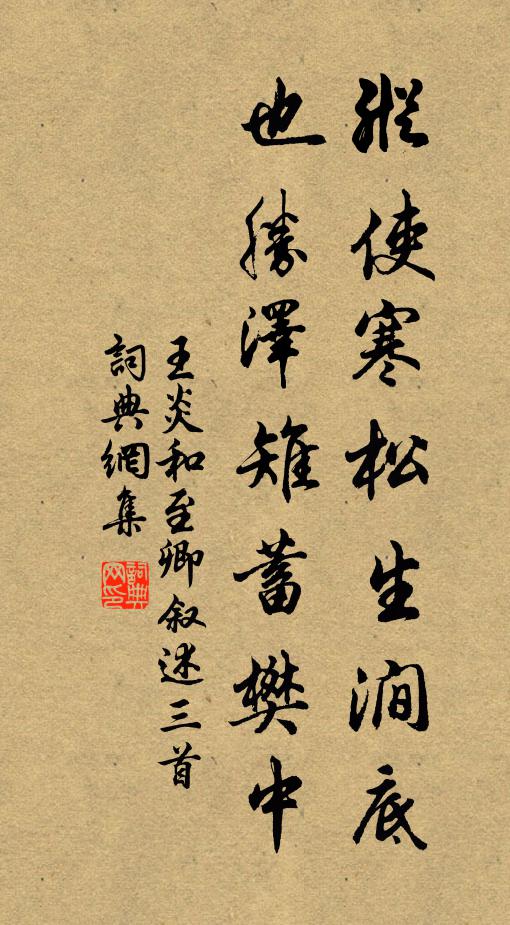 縱使寒松生澗底
也勝澤雉蓄樊中
王炎和至卿叙述三首
詞典網集
詞典
网印